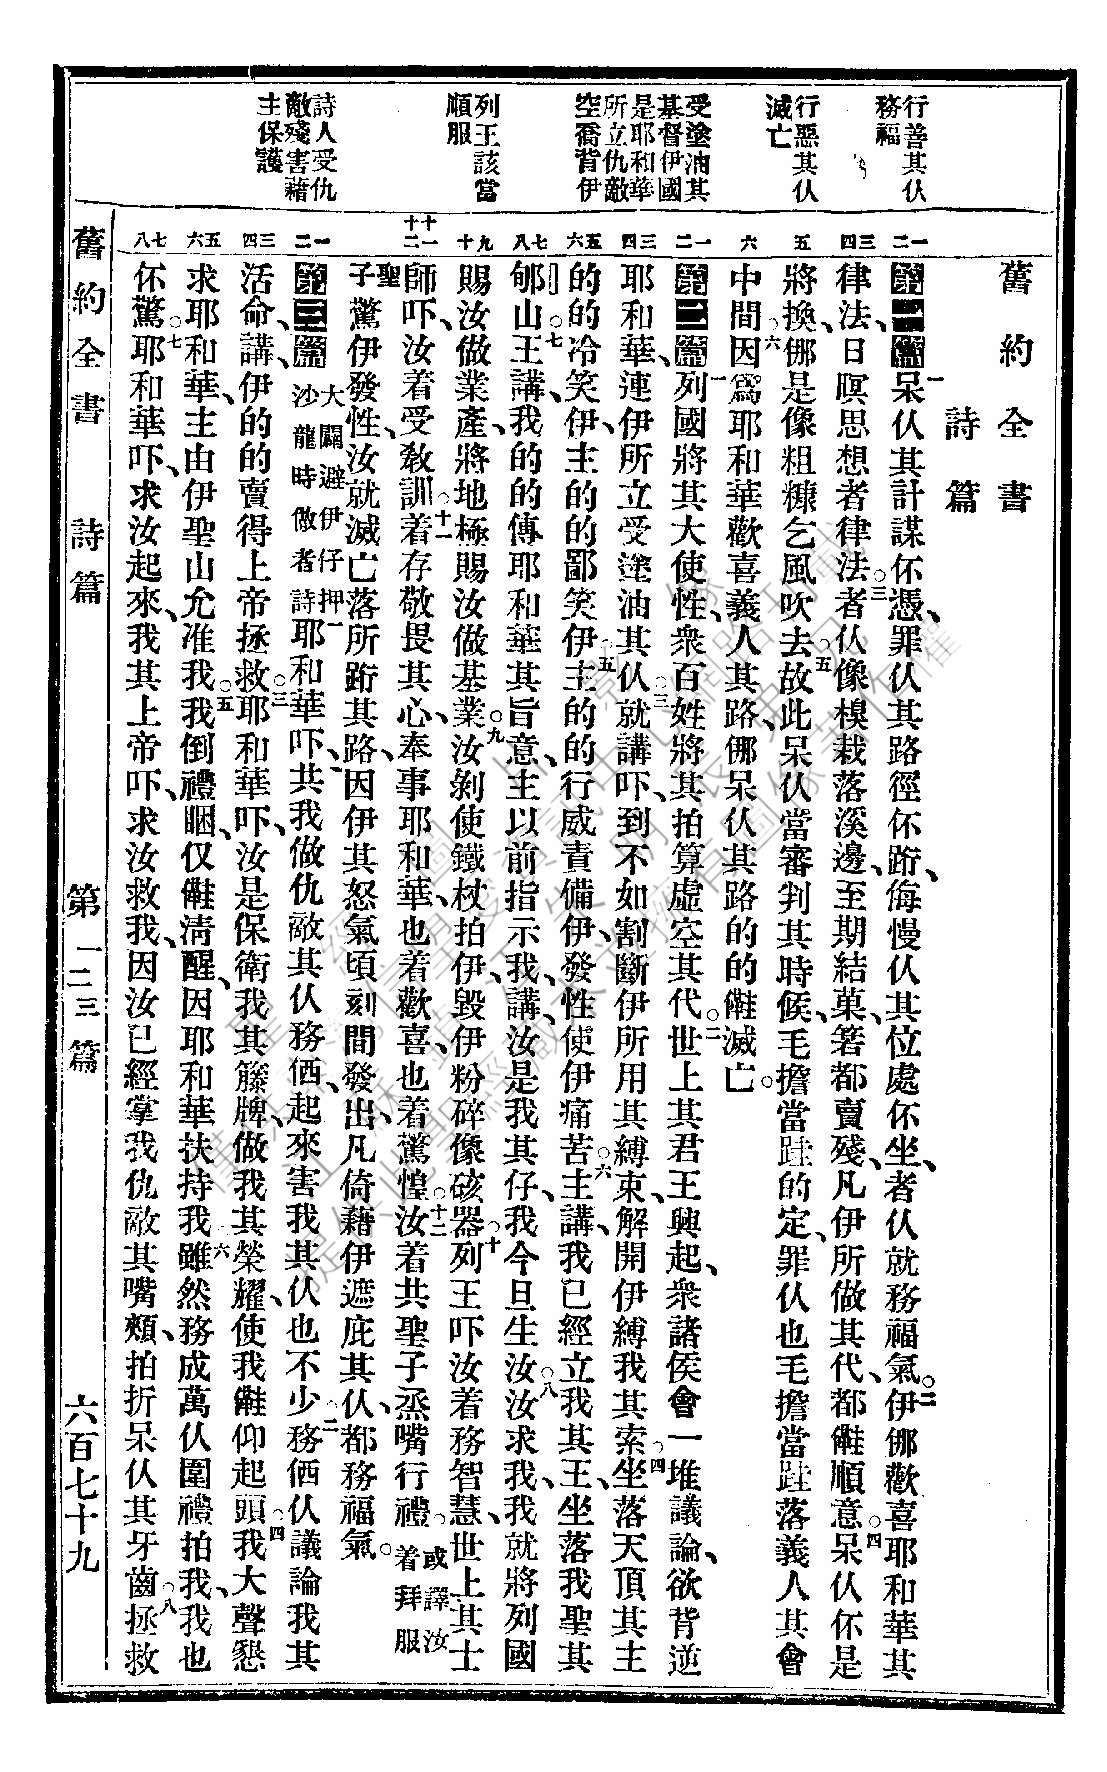 舊約全書
詩篇
行善其仈
務福
行惡其仈
滅亡
受塗油其
基督伊國
是耶和華
所立仇敵
空喬背伊
列王該當
順服
詩人受仇
敵殘害藉
主保護
一二
三四
五
六
一二
三四
五六
七八
九十
十一
十二
一二
三四
五六
七八
第一篇 一呆仈其計謀伓憑、罪仈其路徑伓跲、侮慢仈其位處伓坐、者仈就務福氣。二伊㑚歡喜耶和華其
律法、日暝思想者律法。三者仈像樹栽落溪邊、至期結菓、箬都賣殘、凡伊所做其代、都㑼順意。四呆仈伓是
將換、㑚是像粗糠乞風吹去。五故此呆仈當審判其時候、毛擔當𨀣的定、罪仈也毛擔當𨀣落義人其會
中間。六因爲耶和華歡喜義人其路、㑚呆仈其路的的㑼滅亡。
第二篇 一列國將其大使性、衆百姓將其拍算虛空其代。二世上其君王興起、衆諸侯會一堆議論、欲背逆
耶和華、連伊所立受塗油其仈。三就講吓、到不如割斷伊所用其縛束、解開伊縛我其索。四坐落天頂其主
的的冷笑伊、主的的鄙笑伊。五主的的行威責備伊、發性使伊痛苦。六主講、我已經立我其王、坐落我聖其
郇山。七王講、我的的傳耶和華其旨意、主以前指示我、講、汝是我其仔、我今旦生汝。八汝求我、我就將列國
賜汝做業產、將地極賜汝做基業。九汝剝使鐵杖拍伊、毀伊粉碎像䃣器。十列王吓、汝着務智慧、世上其士
師吓、汝着受敎訓。十一着存敬畏其心、奉事耶和華、也着歡喜、也着驚惶。十二汝着共聖子烝嘴行禮。或譯汝着拜服
聖子驚伊發性、汝就滅亡落所跲其路、因伊其怒氣頃刻間發出、凡倚藉伊遮庇其仈、都務福氣。
第三篇 大闢避伊仔押沙龍時做者詩 一耶和華吓、共我做仇敵其仈務価、起來害我其仈也不少。二務価仈議論我其
活命、講、伊的的賣得上帝拯救。三耶和華吓、汝是保衛我其籐牌、做我其榮耀、使我㑼仰起頭。四我大聲懇
求耶和華、主由伊聖山允准我。五我倒禮睏、仅㑼淸醒、因耶和華扶持我。六雖然務成萬仈圍禮拍我、我也
伓驚。七耶和華吓、求汝起來、我其上帝吓、求汝救我、因汝已經掌我仇敵其嘴頰、拍折呆仈其牙齒。八拯救
舊約全書 詩篇 第一二三篇 六百七十九